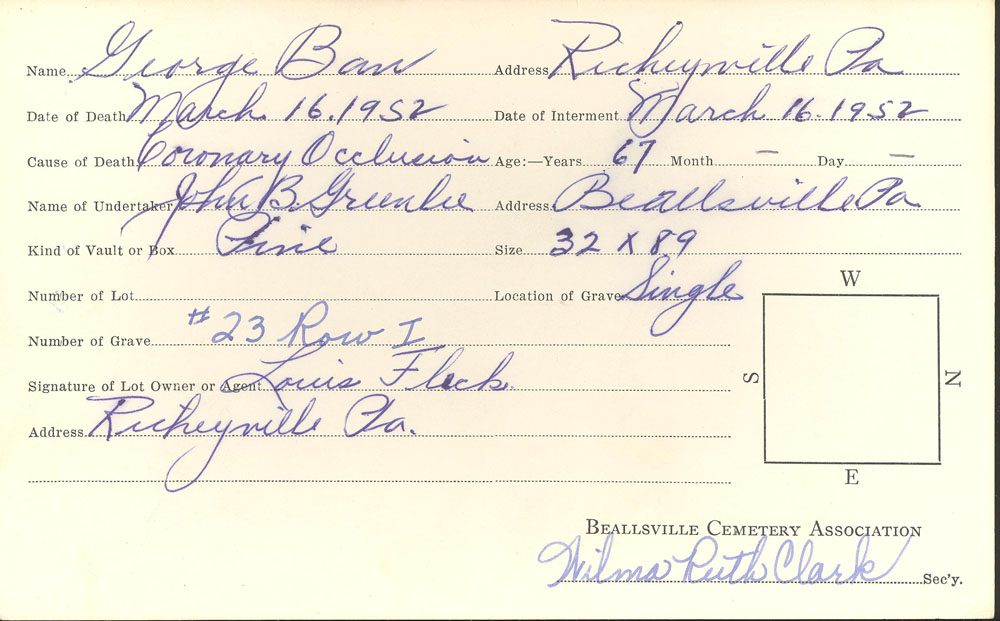 Name George Ban Address Richeyville Pa
Date of Death March 16. 1952 Date of Interment March 16. 1952
Cause of Death Coronary Occlusion Age:—Years 67 Month — Day —
Name of Undertaker John B. Greenlee Address Beallsville Pa
Kind of Vault or Box Pine Size 32 X 89
Number of Lot Location of Grave Single
Number of Grave #23 Row I
Signature of Lot Owner or Agent Louis Fleck
Address Richeyville Pa.
W
S
N
E
BEALLSVILLE CEMETERY ASSOCIATION
Wilma Ruth Clark Sec'y.